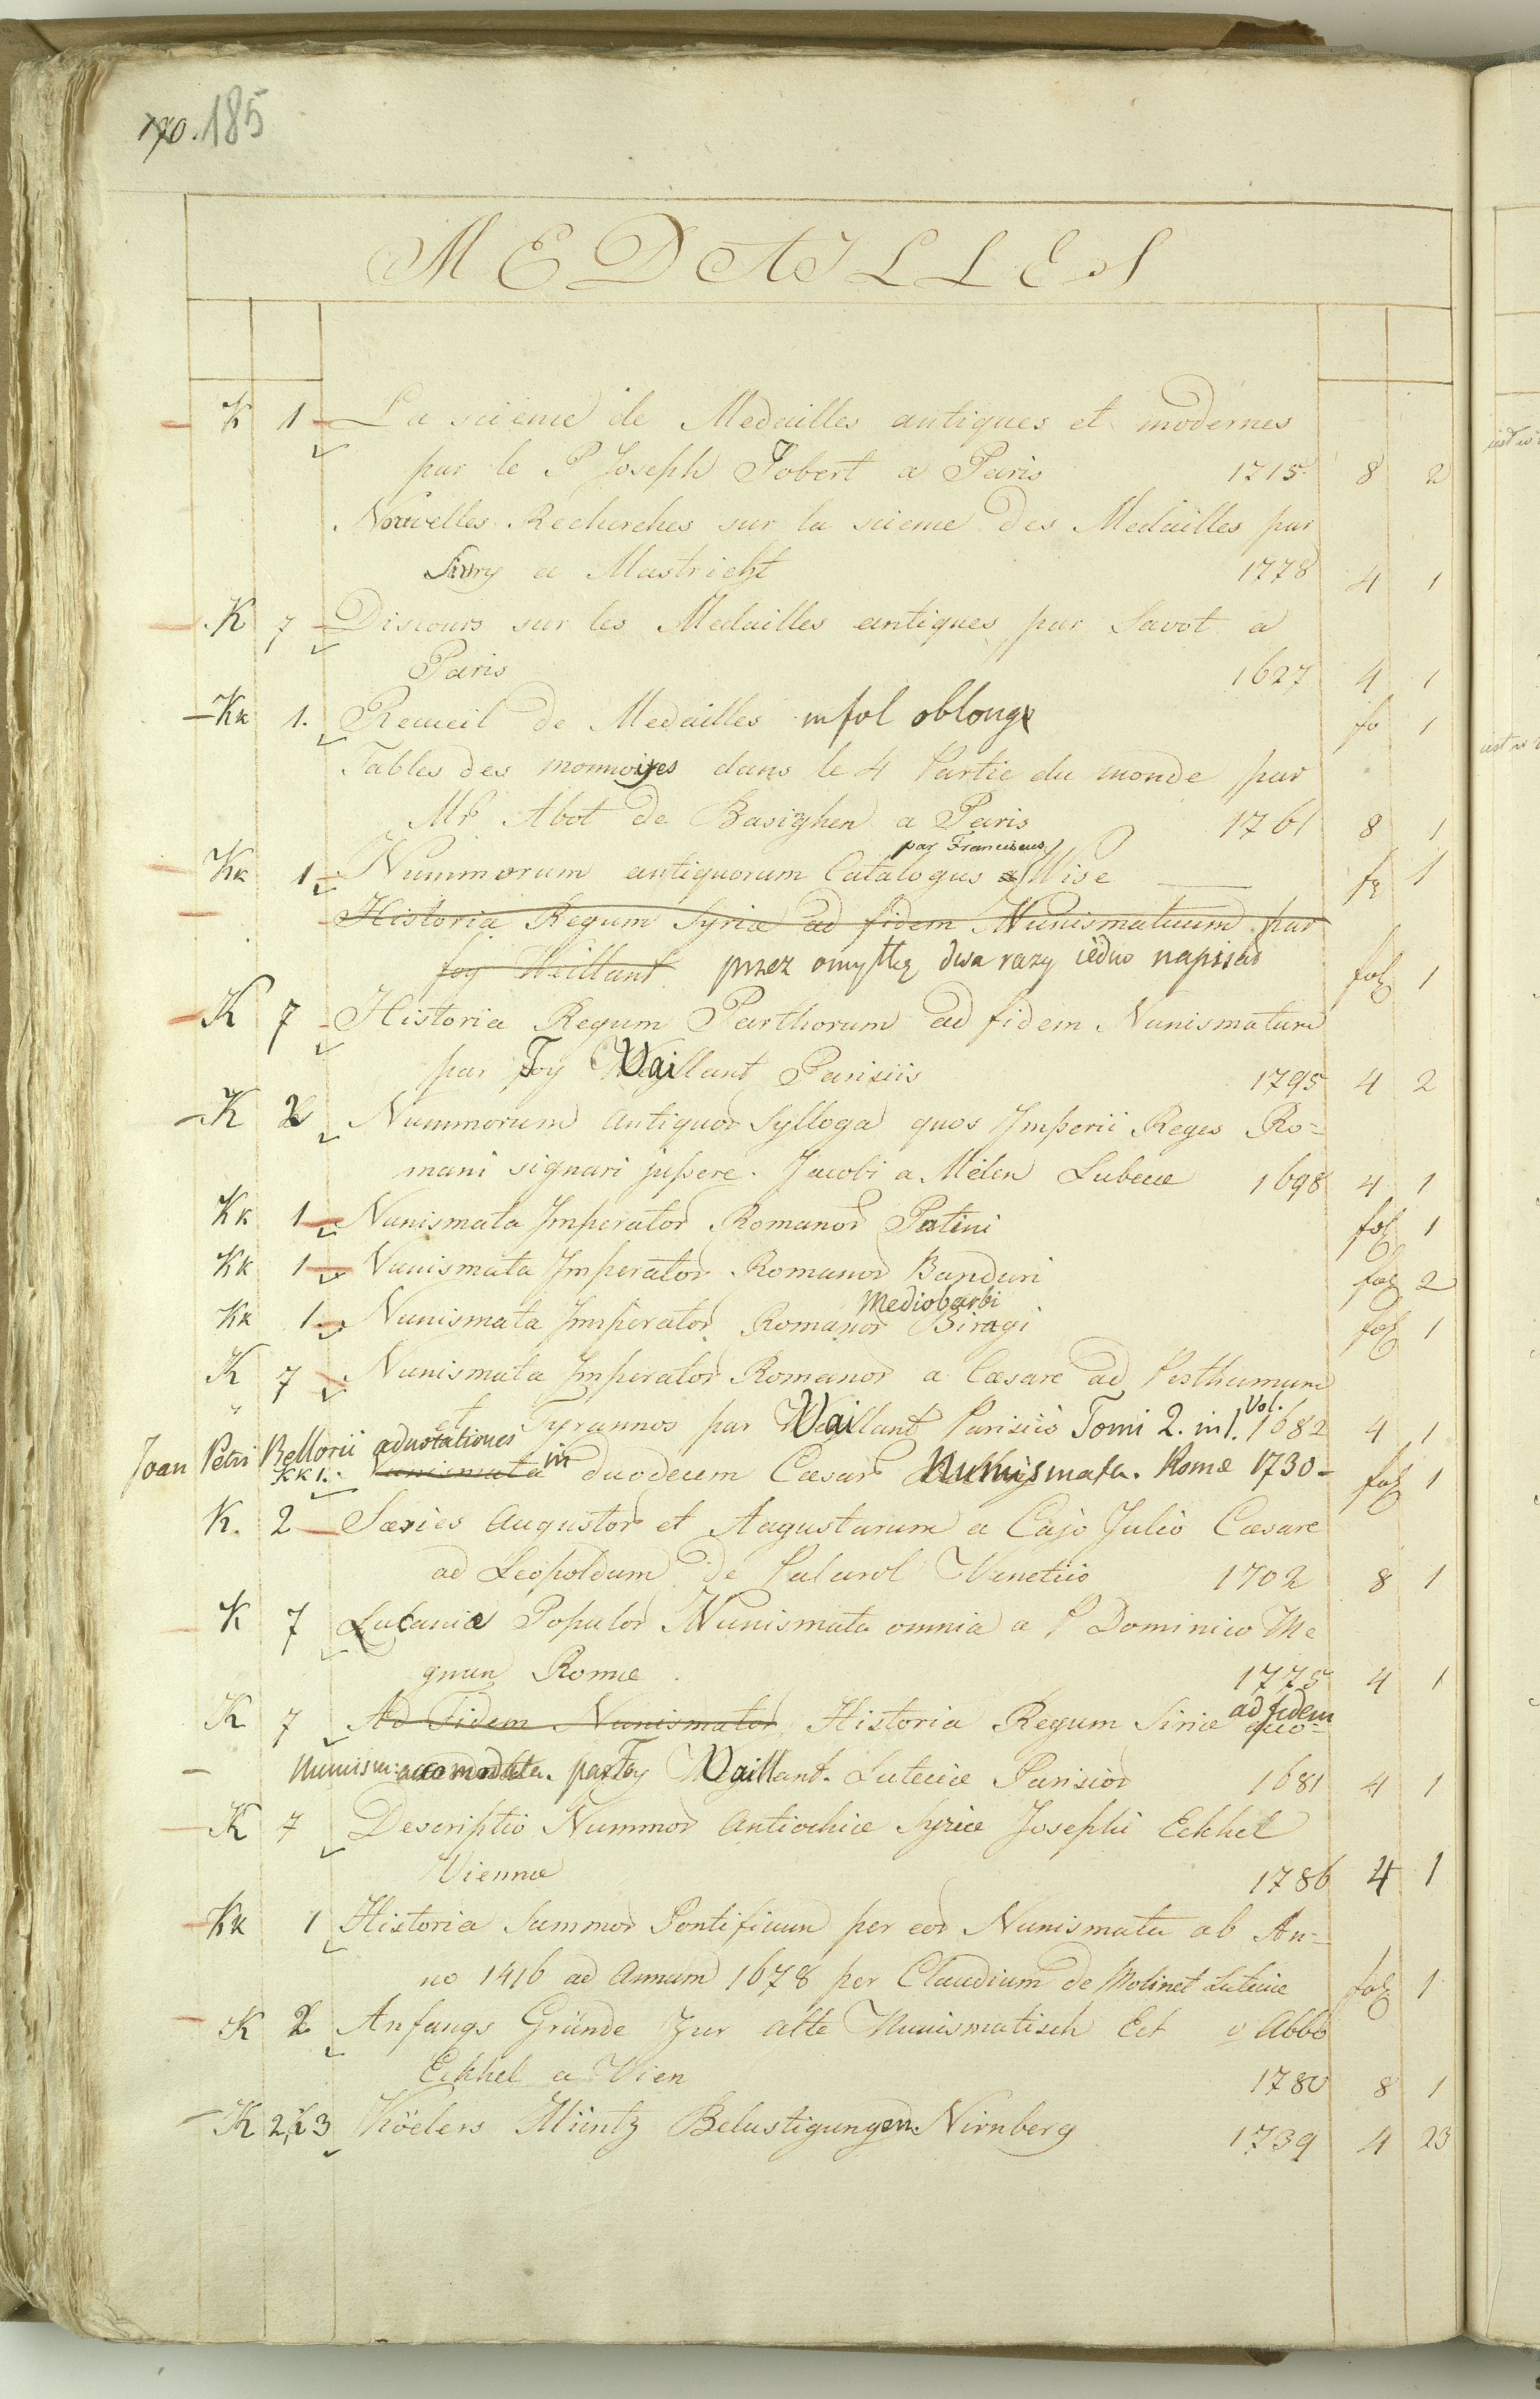 170. 185
MEDAILLES
K 1 La science de Medailles antiques et modernes
par le P Joseph Jobert a Paris 1715 8 2
Nouvelles Recherches sur la science des Medailles par
Sivry a Mastricht 1778 4 1
K 7 Discours sur les Medailles antiques par Savot a
Paris 1627 4 1
Kk 1. Recueil de Medailles in fol oblong fo 1
Tables des monnoyes dans le 4 Partie du monde par
Mr Abot de Basighen a Paris 1761 8 1
par Franciscus
Kk 1 Nummorum antiquorum Catalogus Wise 1
Historia Regum Syriæ ad fidem Nunismatuum par
foy Weillant przez omyłkę dwa razy iedno napisad fol 1
K 7 Historia Regum Parthorum ad fidem Nunismatum
par Foy Vaillant Parisiis 1795 4 2
K 2 Nummorum antiquor Sylloga quos Imperii Reges Ro=
mani signari jussere. Jacobi a Melen Lubecæ 1698 4 1
Kk 1 Nunismata Imperator Romanor Patini fol 1
Kk 1 Nunismata Imperator Romanor Banduri fol 2
Mediobarbi
Kk 1. Nunismata Imperator Romanor Biragi fol 1
K 7 Nunismata Imperator Romanor a Cæsare ad Posthumum
et Tyrannos par Vaillant Parisiis Tomi 2. in 1. Vol. 1682 4 1
Joan Petri Bellorii adnotationes
KK 1. Nunismata in duodecem Cæsar Numismata. Romæ 1730 fol 1
K. 2 Særies Augustor et Augustarum a Cajo Julio Cæsare
ad Leopoldum de Palarol Venetiis 1702 8 1
K 7 Lucaniæ Populor Nunismata omnia a P Dominico Ma
gnan Romæ 1775 4 1
K 7 Ad Fidem Nunismator Historia Regum Siriæ ad fidem
Numism: accomodata. par Foy Vaillant. Luteciæ Parisior 1681 4 1
K 7 Descriptio Nummor Antiochiæ Syriæ Josephi Eckhel
Viennæ 1786 4 1
Kk 1 Historia Summor Pontificum per eor Nunismata ab An=
no 1416 ad Annum 1678 per Claudium de Molinet Luteciæ fol 1
K 2 Anfangs Gründe Zur alte Nunismatisch Ect v Abbé
Eckhel a Wien 1780 8 1
K 2, & 3 Köelers Müntz Belustigungen. Nirnberg 1739 4 23